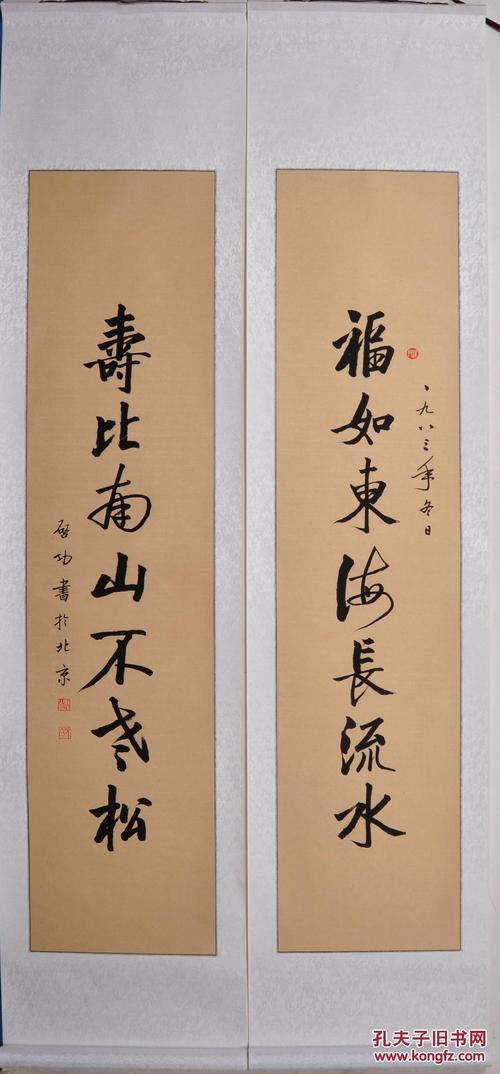 福如東海長流水
一九八三年冬日
壽比南山不老松
啓功書於北京
孔夫子旧书网
www.kongfz.com